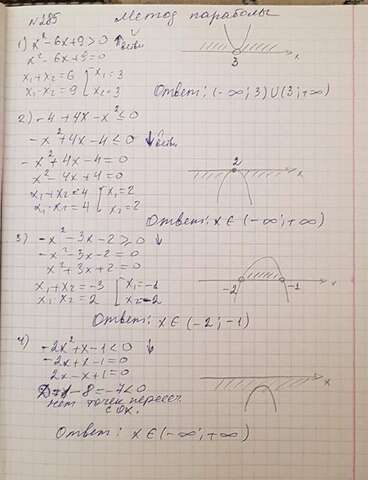 №285 Метод параболы
1) x² - 6x + 9 > 0 ↑ ветви
x² - 6x + 9 = 0
x₁ + x₂ = 6 [ x₁ = 3
x₁ · x₂ = 9 [ x₂ = 3
3 x
Ответ: (-∞; 3) ∪ (3; +∞)
2) -4 + 4x - x² ≤ 0
-x² + 4x - 4 ≤ 0 ↓ ветви
-x² + 4x - 4 = 0
x² - 4x + 4 = 0
x₁ + x₂ = 4 [ x₁ = 2
x₁ · x₂ = 4 [ x₂ = 2
2 x
Ответ: x ∈ (-∞; +∞)
3) -x² - 3x - 2 ≥ 0 ↓
-x² - 3x - 2 = 0
x² + 3x + 2 = 0
x₁ + x₂ = -3 [ x₁ = -1
x₁ x₂ = 2 [ x₂ = -2
-2 -1 x
Ответ: x ∈ (-2; -1)
4) -2x² + x - 1 < 0 ↓
-2x + x - 1 = 0
2x - x + 1 = 0
- 8 = -7 < 0
нет точек пересеч.
с OX.
x
Ответ: x ∈ (-∞; +∞)